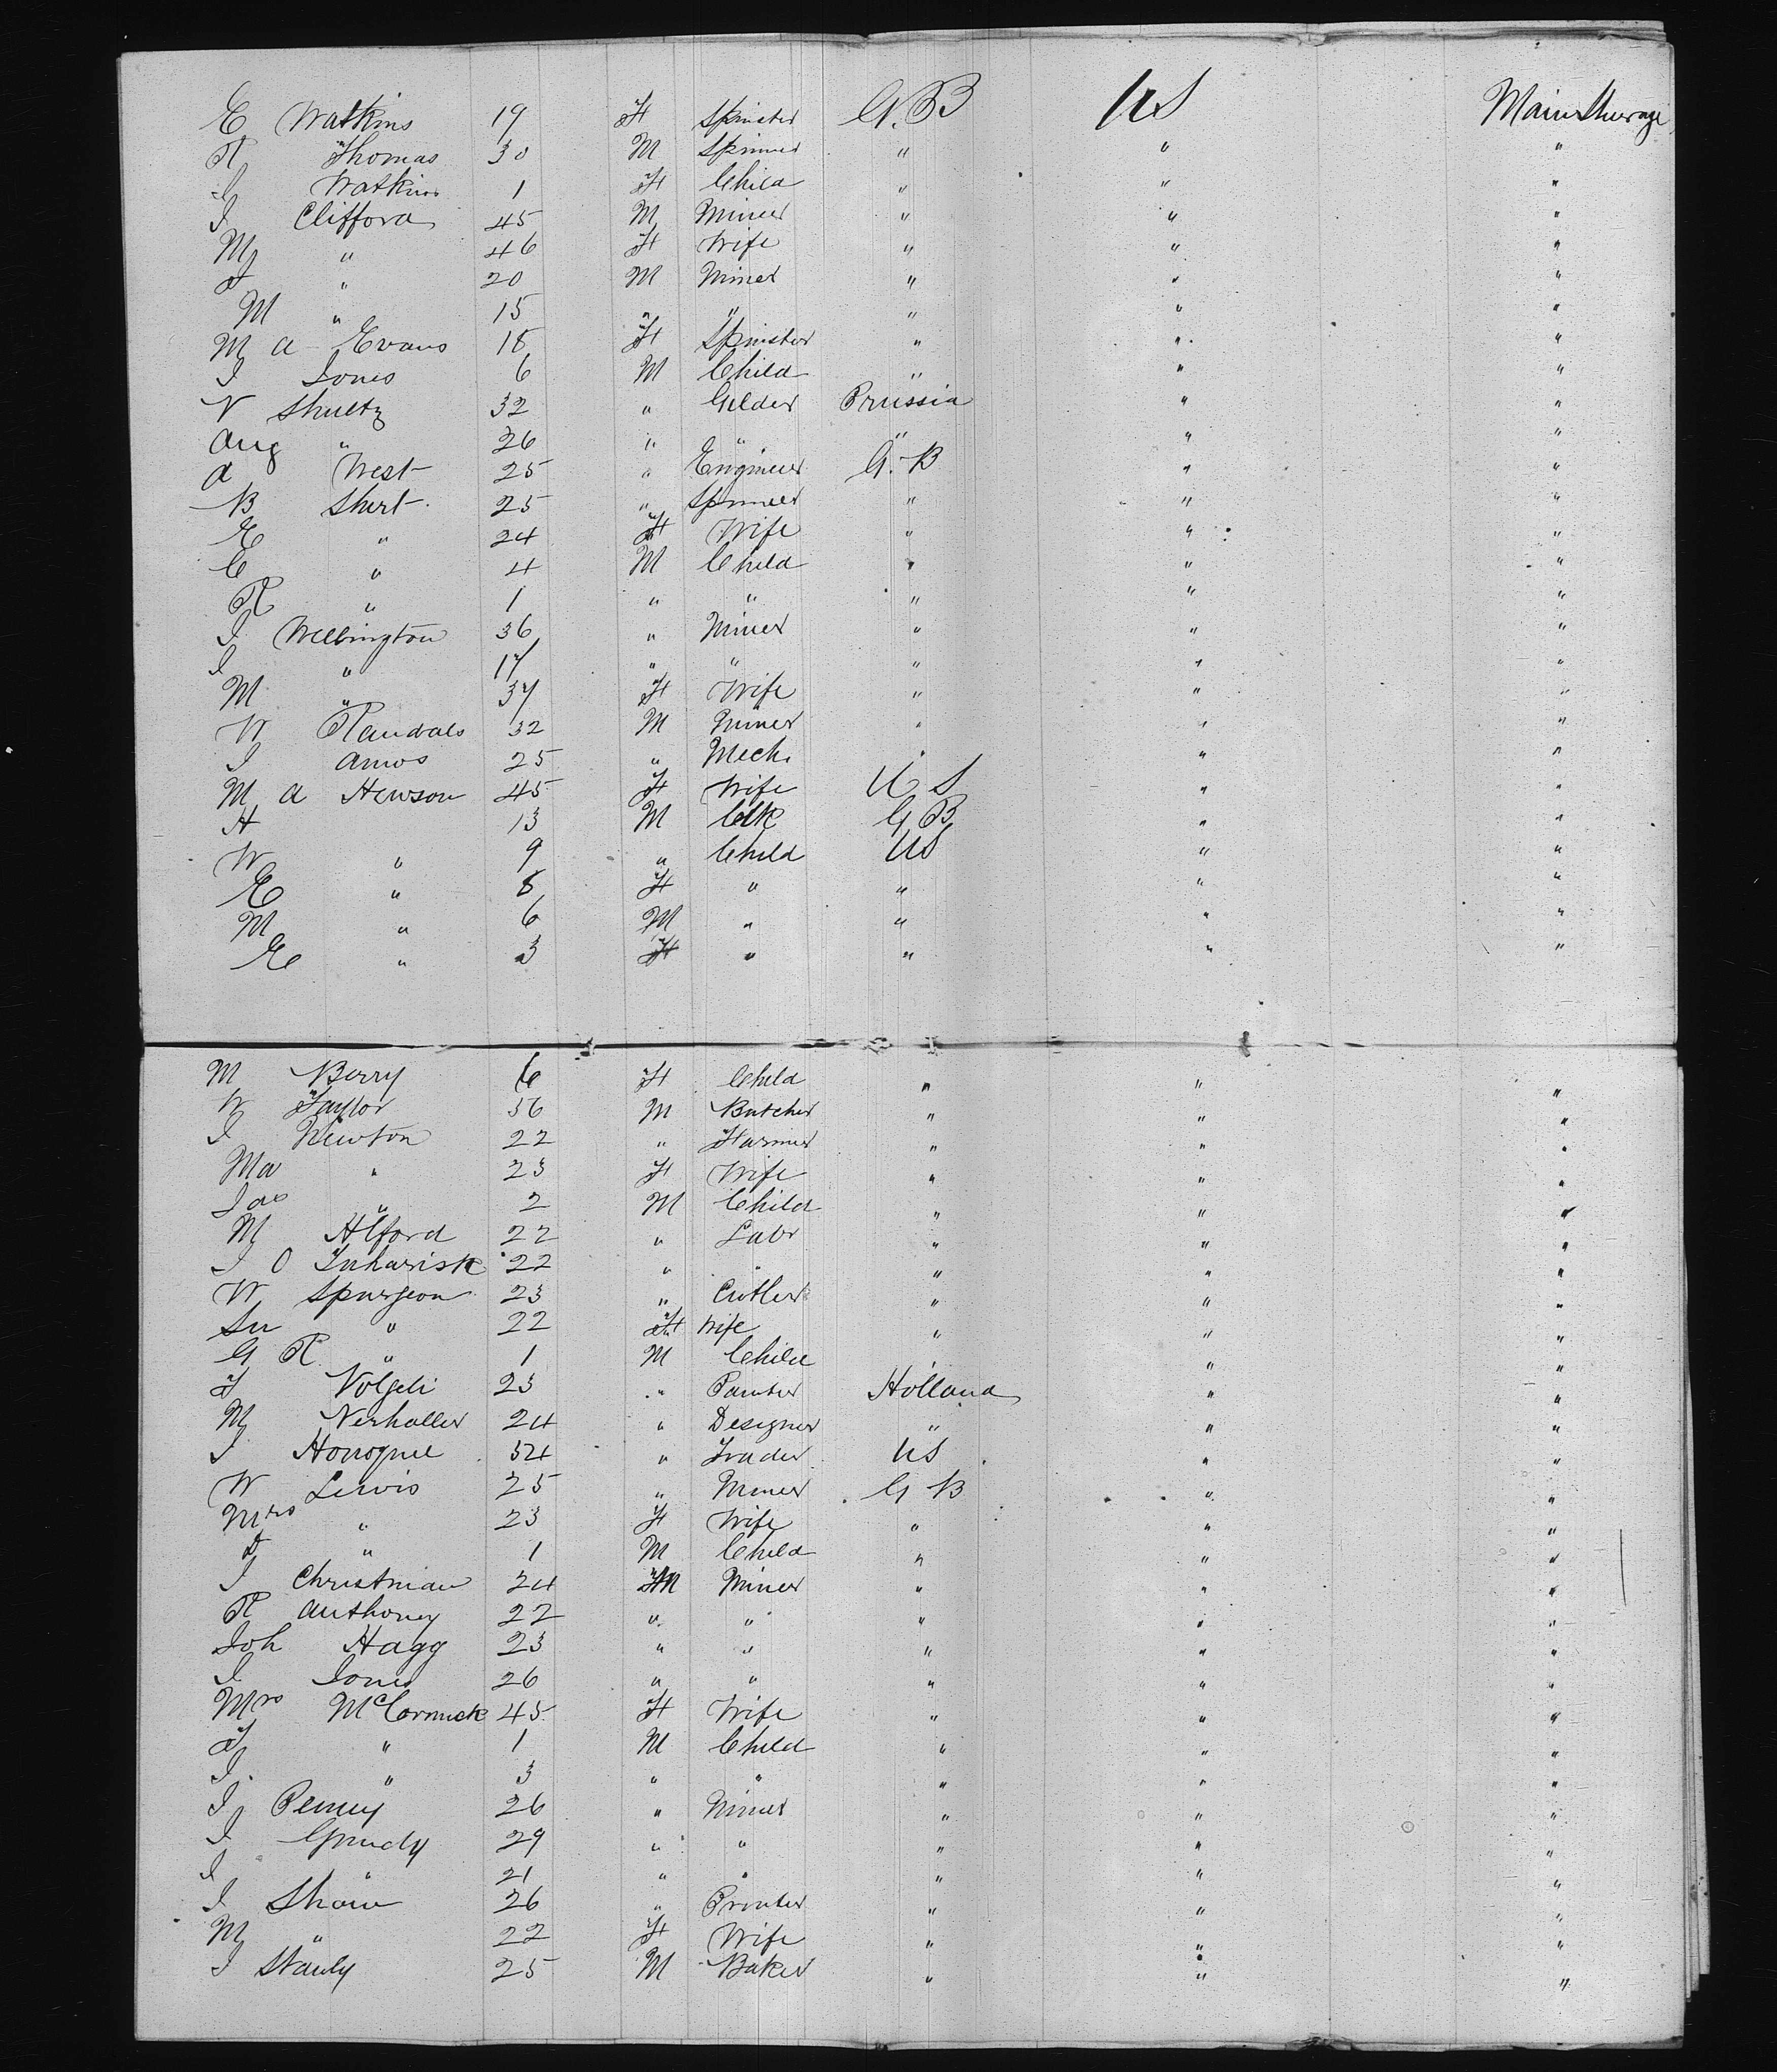 E Watkins 19 F Spinster G.B US Main Steerage
R Thomas 30 M Spinner " " "
J Watkins 1 F Child " " "
J Clifford 45 M Miner " " "
M " 46 F Wife " " "
J " 20 M Miner " " "
M " 15 " " " " "
M A Evans 18 F Spinster " " "
J Jones 6 M Child " " "
N Shultz 32 " Gilder Prussia " "
Aug " 26 " " " " "
A West 25 " Engineer G.B " "
B Shert 25 " Spinner " " "
E " 24 F Wife " " "
C " 4 M Child " " "
R " 1 " " " " "
J Wellington 36 " Miner " " "
J " 17 " " " " "
M " 37 F Wife " " "
W Randals 32 M Miner " " "
J Amos 25 " Mech. " " "
M A Hewson 45 F Wife US " "
H 13 M Clk GB " "
W " 9 " Child US " "
E " 8 F " " " "
M " 6 M " " " "
E " 3 F " " " "
M Berry 6 F Child " " "
W Taylor 36 M Butcher " " "
J Newton 22 " Farmer " " "
Ma " 23 F Wife " " "
Jas " 2 M Child " " "
M Alford 22 " Labr " " "
J O 22 " " " " "
W Spurgeon 23 " Cutler " " "
Su " 22 F Wife " " "
G R " 1 M Child " " "
F Volgeli 23 " Painter Holland " "
M Nerhaller 24 " Designer " " "
J 34 " Trader US " "
W Lewis 25 " Miner GB " "
Mrs " 23 F Wife " " "
D " 1 M Child " " "
J Christmian 24 M Miner " " "
R Anthoney 22 " " " " "
Joh Hagg 23 " " " " "
J Jones 26 " " " " "
Mrs McCormick 45 F Wife " " "
F " 1 M Child " " "
J. " 3 " " " " "
J Penny 26 " Miner " " "
J Grundy 29 " " " " "
J " 21 " " " " "
J Shaw 26 " Printer " " "
M " 22 F Wife " " "
J Stanly 25 M Baker " " "